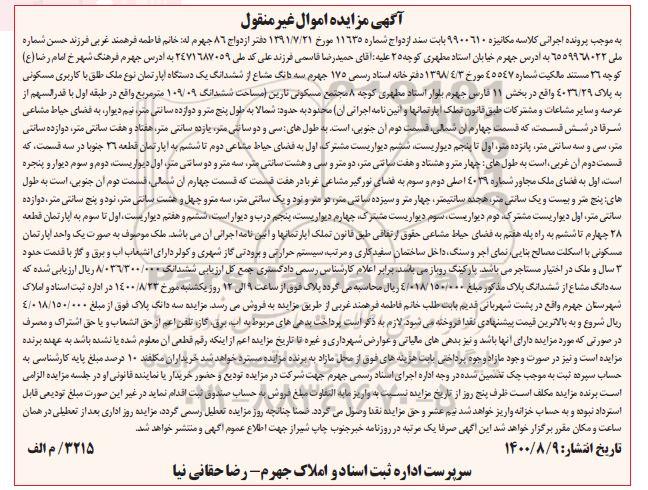 آگهی مزایده اموال غیر منقول
به موجب پرونده اجرائی کلاسه مکانیزه ۹۹۰۰۶۱۰ بابت سند ازدواج شماره ۱۱۶۳۵ مورخ ۱۳۹۱/۷/۲۱ دفتر ازدواج ۸۶ جهرم له: خانم فاطمه فرهمند غربی فرزند حسن شماره
ملی ۶۵۵۹۹۶۸۰۲۲ به آدرس جهرم خیابان استاد مطهری کوچه ۲۵ علیه: آقای حمیدرضا قاسمی فرزند علی کد ملی ۲۴۷۱۶۸۷۰۵۹ به آدرس جهرم فرهنگ شهر خ امام رضا (ع)
کوچه ۲۶ مستند مالکیت شماره ۴۵۵۴۷ مورخ ۱۳۹۸/۴/۳ دفترخانه اسناد رسمی ۱۷۵ جهرم سه دانگ مشاع از ششدانگ یک دستگاه آپارتمان نوع ملک طلق با کاربری مسکونی
به پلاک ۴۰۳۶/۲۹ واقع در بخش ۱۱ فارس جهرم بلوار استاد مطهری کوچه ۸ مجتمع مسکونی نارین (مساحت ششدانگ ۱۰۹/۰۹ مترمربع واقع در طبقه اول با قدرالسهم از
عرصه و سایر مشاعات و مشترکات طبق قانون تملک آپارتمانها و آئین نامه اجرائی آن) محدود به حدود: شمالا به طول پنج متر و دوازده سانتی متر، نیم دیوار، به فضای حیاط مشاعی
شرقا در شش قسمت، که قسمت چهارم آن شمالی، قسمت دوم آن جنوبی، است. به طول های: سی و دو سانتی متر، یازده سانتی متر، هفتاد و هفت سانتی متر، دوازده سانتی
متر، سی و سه سانتی متر، پانزده متر، اول تا پنجم دیواریست، ششم دیواریست مشترک، اول به فضای حیاط مشاعی دوم تا ششم به آپارتمان قطعه ۲۶ جنوبا در سه قسمت، که
قسمت دوم آن غربی، است به طول های: چهار متر و هشتاد و هفت سانتی متر، دو متر و سی و هشت سانتی متر، سه متر و دو سانتی متر، اول دیواریست، دوم و سوم دیوار و پنجره
است، اول به فضای ملک مجاور شماره ۴۰۳۹ اصلی دوم و سوم به فضای نورگیر مشاعی غربا در هفت قسمت که قسمت چهارم آن شمالی، قسمت دوم آن جنوبی، است به طول
های: پنج متر و بیست و یک سانتی متر، هجده سانتیمتر، چهار متر و سیزده سانتی متر، دو متر و نود و یک سانتی متر، سه متر و چهل و هشت سانتی متر، نود و پنج سانتی متر، دوازده
سانتی متر، اول دیواریست مشترک، دوم دیواریست، سوم دیواریست مشترک، چهارم دیواریست، پنجم درب و دیوار است، ششم و هفتم دیواریست، اول تا سوم به آپارتمان قطعه
۲۸ چهارم تا ششم به راه پله هفتم به فضای حیاط مشاعی حقوق ارتفاقی طبق قانون تملک آپارتمانها و آئین نامه اجرائی آن می باشد. ملک موصوف به صورت یک واحد آپارتمان
مسکونی با اسکلت مصالح بنایی، نمای آجر و سنگ، داخل ساختمان سفیدکاری و مرتب، سیستم حرارتی و برودتی گاز شهری و کولر دارای انشعاب آب و برق و گاز با قدمت حدود
۳ سال و ملک در اختیار مستاجر می باشد. پارکینگ روباز می باشد. برابر اعلام کارشناس رسمی دادگستری جمع کل ارزیابی ششدانگ ۸/۰۳۶/۳۰۰/۰۰۰ ریال ارزیابی شده که
سه دانگ مشاع از ششدانگ پلاک مذکور مبلغ ۴/۰۱۸/۱۵۰/۰۰۰ ریال محاسبه می گردد پلاک فوق از ساعت ۹ الی ۱۲ روز یکشنبه مورخ ۱۴۰۰/۸/۲۳ در اداره ثبت اسناد و املاک
شهرستان جهرم واقع در پشت شهربانی قدیم بابت طلب خانم فاطمه فرهمند غربی از طریق مزایده به فروش می رسد. مزایده سه دانگ پلاک فوق از مبلغ ۴/۰۱۸/۱۵۰/۰۰۰
ریال شروع و به بالاترین قیمت پیشنهادی نقدا فروخته می شود. لازم به ذکر است پرداخت بدهی های مربوط به آب، برق، گاز، تلفن اعم از حق انشعاب و یا حق اشتراک و مصرف
در صورتی که مورد مزایده دارای آنها باشد و نیز بدهی های مالیاتی و عوارض شهرداری و غیره تا تاریخ مزایده اعم از اینکه رقم قطعی آن معلوم شده یا نشده باشد به عهده برنده
مزایده است و نیز در صورت وجود مازاد وجوه پرداختی بابت هزینه های فوق از محل مازاد به برنده مزایده مسترد خواهد شد خریداران مکلفند ۱۰ درصد مبلغ پایه کارشناسی به
حساب سپرده ثبت به موجب چک تضمین شده در وجه اداره اجرای اسناد رسمی جهرم جهت شرکت در مزایده تودیع و حضور خریدار یا نماینده قانونی او در جلسه مزایده الزامی
است برنده مزایده مکلف است ظرف پنج روز از تاریخ مزایده نسبت به واریز مابه التفاوت مبلغ فروش به حساب صندوق ثبت اقدام نماید در غیر این صورت مبلغ تودیعی قابل
استرداد نبوده و به حساب خزانه واریز خواهد شد نیم عشر و حق مزایده نقدا وصول می گردد. ضمنا چنانچه روز مزایده تعطیل رسمی گردد، مزایده روز اداری بعد از تعطیلی در همان
ساعت و مکان مقرر برگزار خواهد شد این آگهی صرفا یک مرتبه در روزنامه خبرجنوب چاپ شیراز جهت اطلاع عموم آگهی و منتشر خواهد شد.
تاریخ انتشار: ۱۴۰۰/۸/۹
۳۲۱۵/ م الف
سرپرست اداره ثبت اسناد و املاک جهرم – رضا حقانی نیا